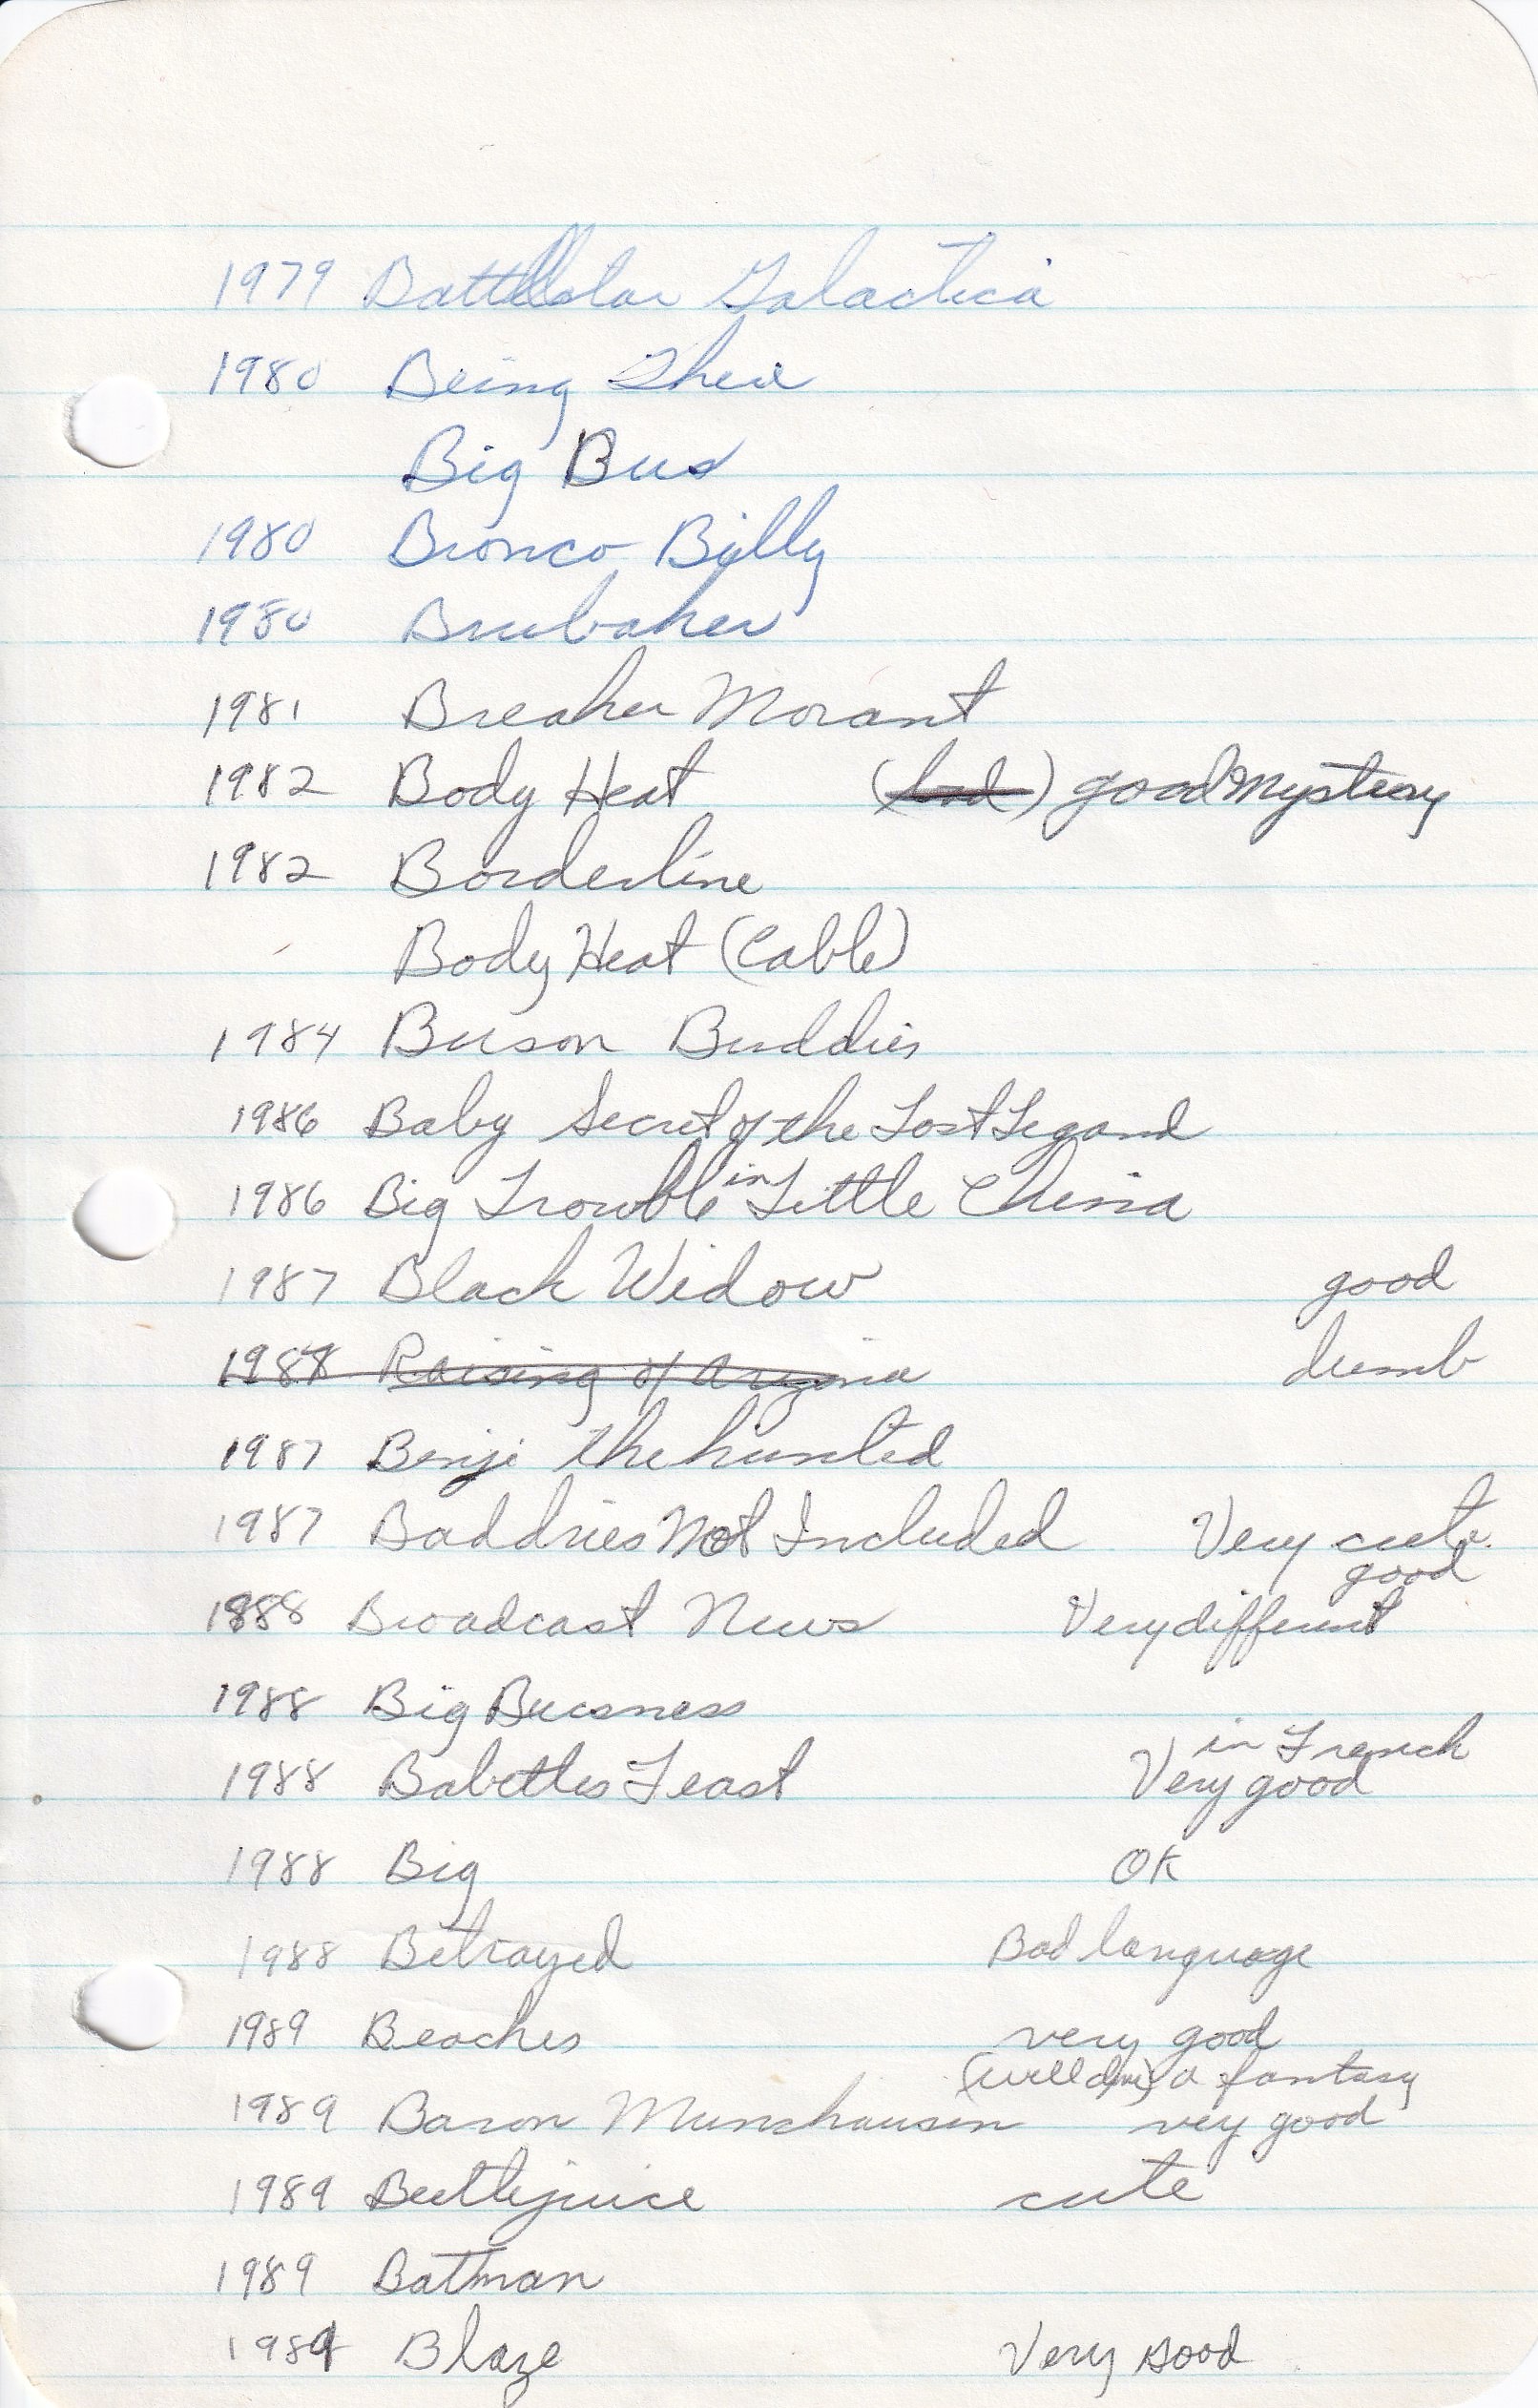 1979 Battlestar Galactica
1980 Being There
Big Bus
1980 Bronco Billy
1980 Brubaker
1981 Breaker Morant
1982 Body Heat (bad) good Mystery
1982 Borderline
Body Heat (Cable)
1984 Buson Buddies
1986 Baby Secret of the Lost Legand
1986 Big Trouble in Little China
1987 Black Widow good
1987 Raising of Arizona dumb
1987 Benji the hunted
1987 Baddries Not Included Very cute.
good
1888 Broadcast News Very different
1988 Big Busness
in French
1988 Babettes Feast Very good
1988 Big OK
1988 Betrayed Bad language
1989 Beaches very good
(well done) a fantasy
1989 Baron Munchausen very good
1989 Beetlejuice cute
1989 Batman
1989 Blaze Very good